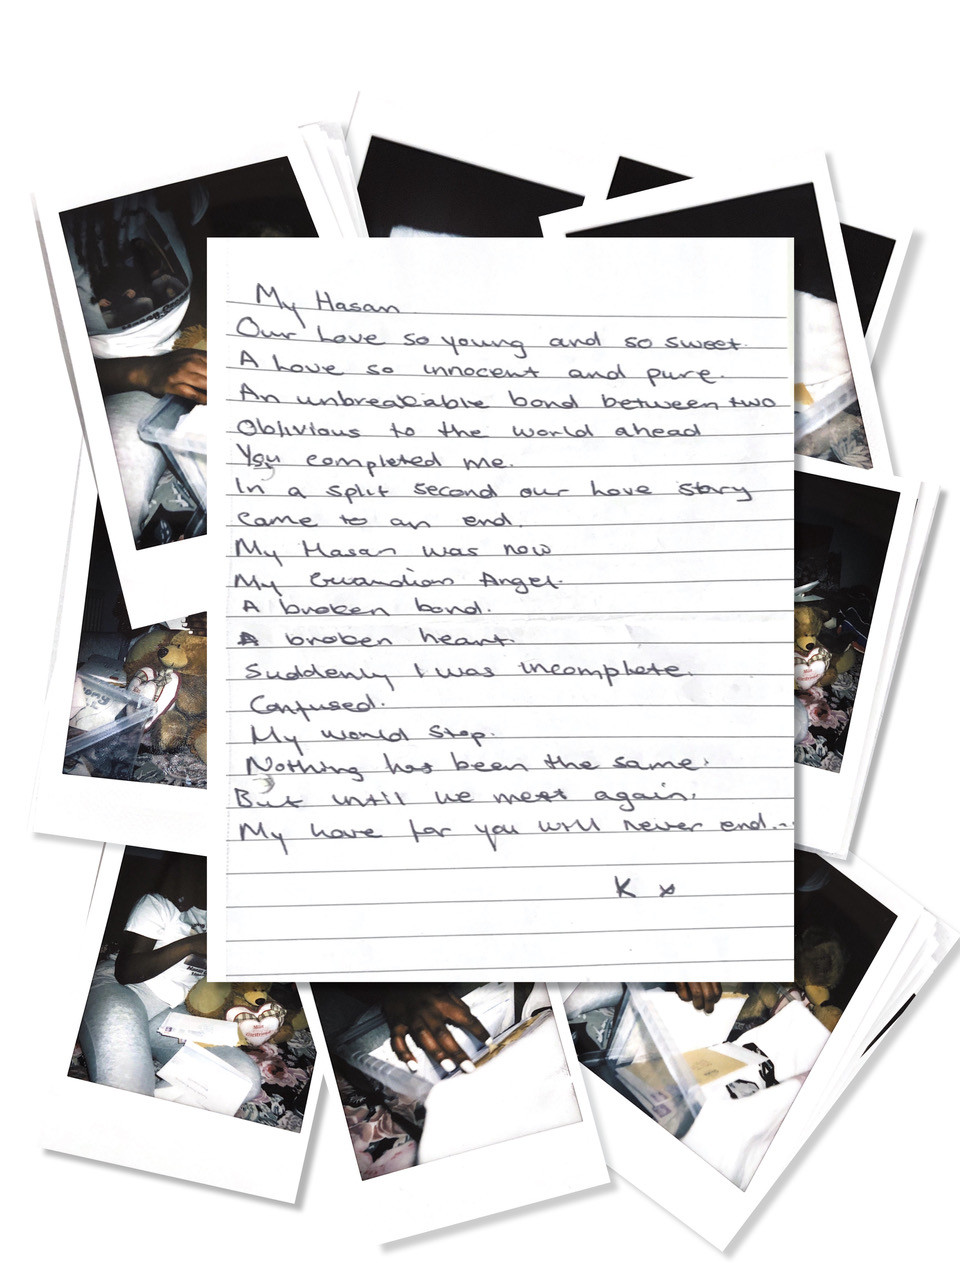 My Hasan
Our Love so young and so sweet.
A Love so innocent and pure.
An unbreakable bond between two
Oblivious to the world ahead
You completed me.
In a split second our Love story
Came to an end.
My Hasan was now
My Guardian Angel.
A broken bond.
A broken heart.
Suddenly I was incomplete.
Confused.
My world Stop.
Nothing has been the same.
But until we meet again.
My Love for you will never end...
K x